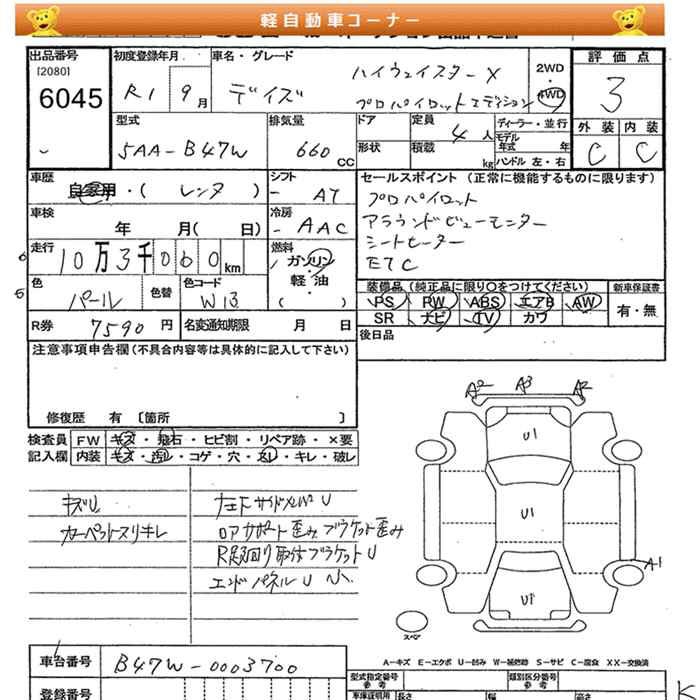 軽自動車コーナー
出品番号
[2080]
6045
初度登録年月
R1 9月
車名・グレード
デイズ
ハイウェイスターX
プロパイロットエディション
2WD
・
4WD
評価点
3
外装 内装
C C
型式
5AA-B47W
排気量
660 CC
ドア
形状
定員
4人
積載
kg
ディーラー・並行
モデル
年式 年
ハンドル 左・右
車歴
自家用・( レンタ )
シフト
AT
車検
年 月( 日)
冷房
AAC
走行
10万3千060km
燃料
ガソリン・
軽油・
( )
色
パール
色替
色コード
W13
R券
7590円
名変通知期限 月 日
セールスポイント (正常に機能するものに限ります)
プロパイロット
アラウンドビューモニター
シートヒーター
ETC
装備品 (純正品に限り〇をつけてください)
PS PW ABS エアB AW
SR ナビ TV カワ
新車保証書
有・無
後日品
注意事項申告欄 (不具合内容等は具体的に記入して下さい)
修復歴 有 〔箇所 〕
検査員
記入欄
FW キズ・飛石・ヒビ割・リペア跡・×要
内装 キズ・汚レ・コゲ・穴・スレ・キレ・破レ
キズU
カーペットスリキレ
左右サイドメンバU
ロアサポート歪みブラケット歪み
R足回り取付ブラケットU
エンドパネルU
A2 A3 A2
U1
U1
U1
A1
スペア
A-キズ E-エクボ U-凹み W-補修跡 S-サビ C-腐食 XX-交換済
車台番号
B47W-0003700
登録番号
型式指定番号
参考
類別区分番号
参考
車庫証明用
長さ
幅
高さ